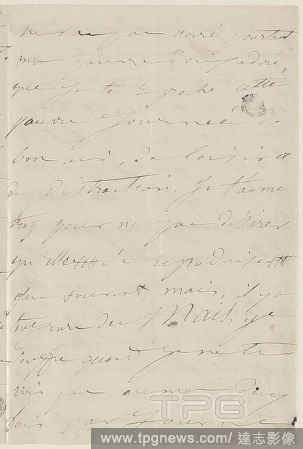 mon pauvre doux adoré,
que je te reproche cette
pauvre journée de
bon air, de loisir et
de distraction. Je t'aime
trop pour ne pas désirer
qu'elle se reproduise
plus souvent mais, il y a
toujours des Mais, je
souffre quand je ne te
vois pas au moins deux
fois par jour
TPG
www.tpgnews.com/達志影像